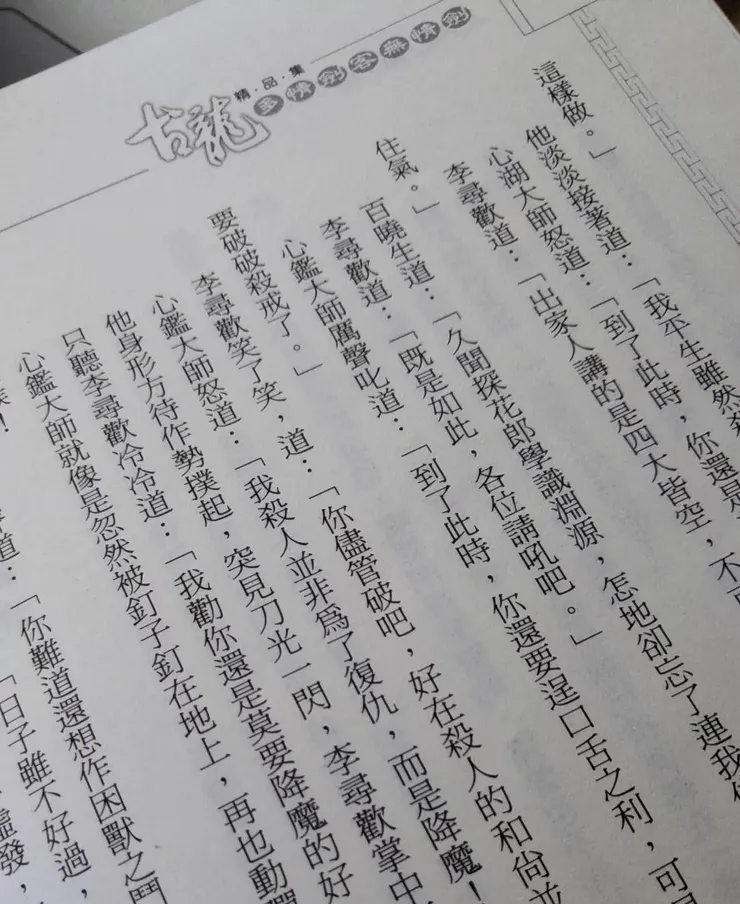 古龍
精·品·集
多情劍客無情劍
這樣做。」
他淡淡接著道：「我平生雖然
心湖大師怒道：「到了此時，你還是
李尋歡道：「出家人講的是四大皆空，不
住氣。」
百曉生道：「久聞探花郎學識淵源，怎地卻忘了連我
李尋歡道：「既是如此，各位請吼吧。」
心鑑大師厲聲叱道：「到了此時，你還要逞口舌之利，可
要破破殺戒了。」
李尋歡笑了笑，道：「你儘管破吧，好在殺人的和尚並
心鑑大師怒道：「我殺人並非爲了復仇，而是降魔！
他身形方待作勢撲起，突見刀光一閃，李尋歡掌中
只聽李尋歡冷冷道：「我勸你還是莫要降魔的好
心鑑大師就像是忽然被釘子釘在地上，再也動彈
道：「你難道還想作困獸之鬥
「日子雖不好過，
發，